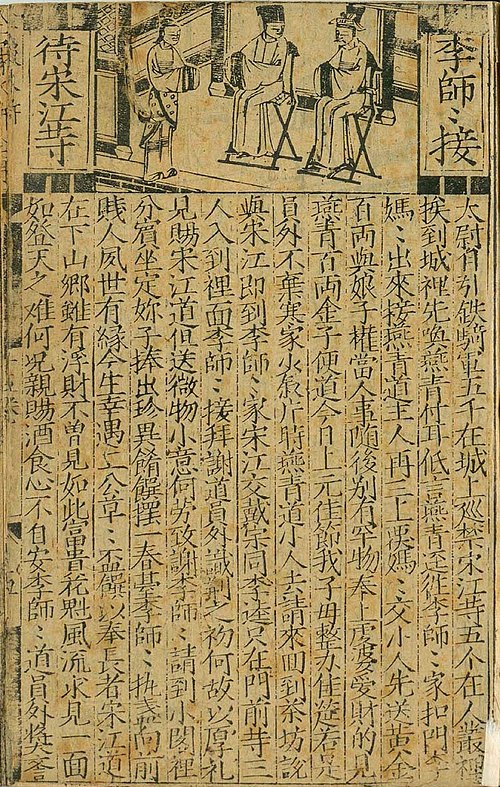 李師〻接
待宋江䒭
太尉自引鉄騎軍五千在城上廵禁宋江䒭五个在人叢裡
挨到城裡先喚燕青付耳低言燕青逕往李師〻家扣門李
媽〻出來接燕青道主人再三上覆媽〻交小人先送黃金
百両與娘子權當人事随後別有罕物奉上虔婆愛財的見
燕青百両金子便道今日上元佳節我子母整办佳筵若是
員外不棄寒家少叙片時燕青道小人去請來囬到茶坊說
與宋江即到李師〻家宋江交戴宗同李逵只在門前䒭三
人入到裡面李師〻接拜謝道員外識荊之初何故以厚礼
見賜宋江道但送微物小意何劳致謝李師〻請到小閣裡
分賓坐定妳子捧出珍異餚饌擺一春臺李師〻执盞向前
賎人夙世有緣今生幸遇二公草〻盃饌以奉長者宋江道
在下山鄉雖有浮財不曾見如此富貴花魁風流求見一面
如登天之难何况親賜酒食心不自安李師〻道員外奬誉